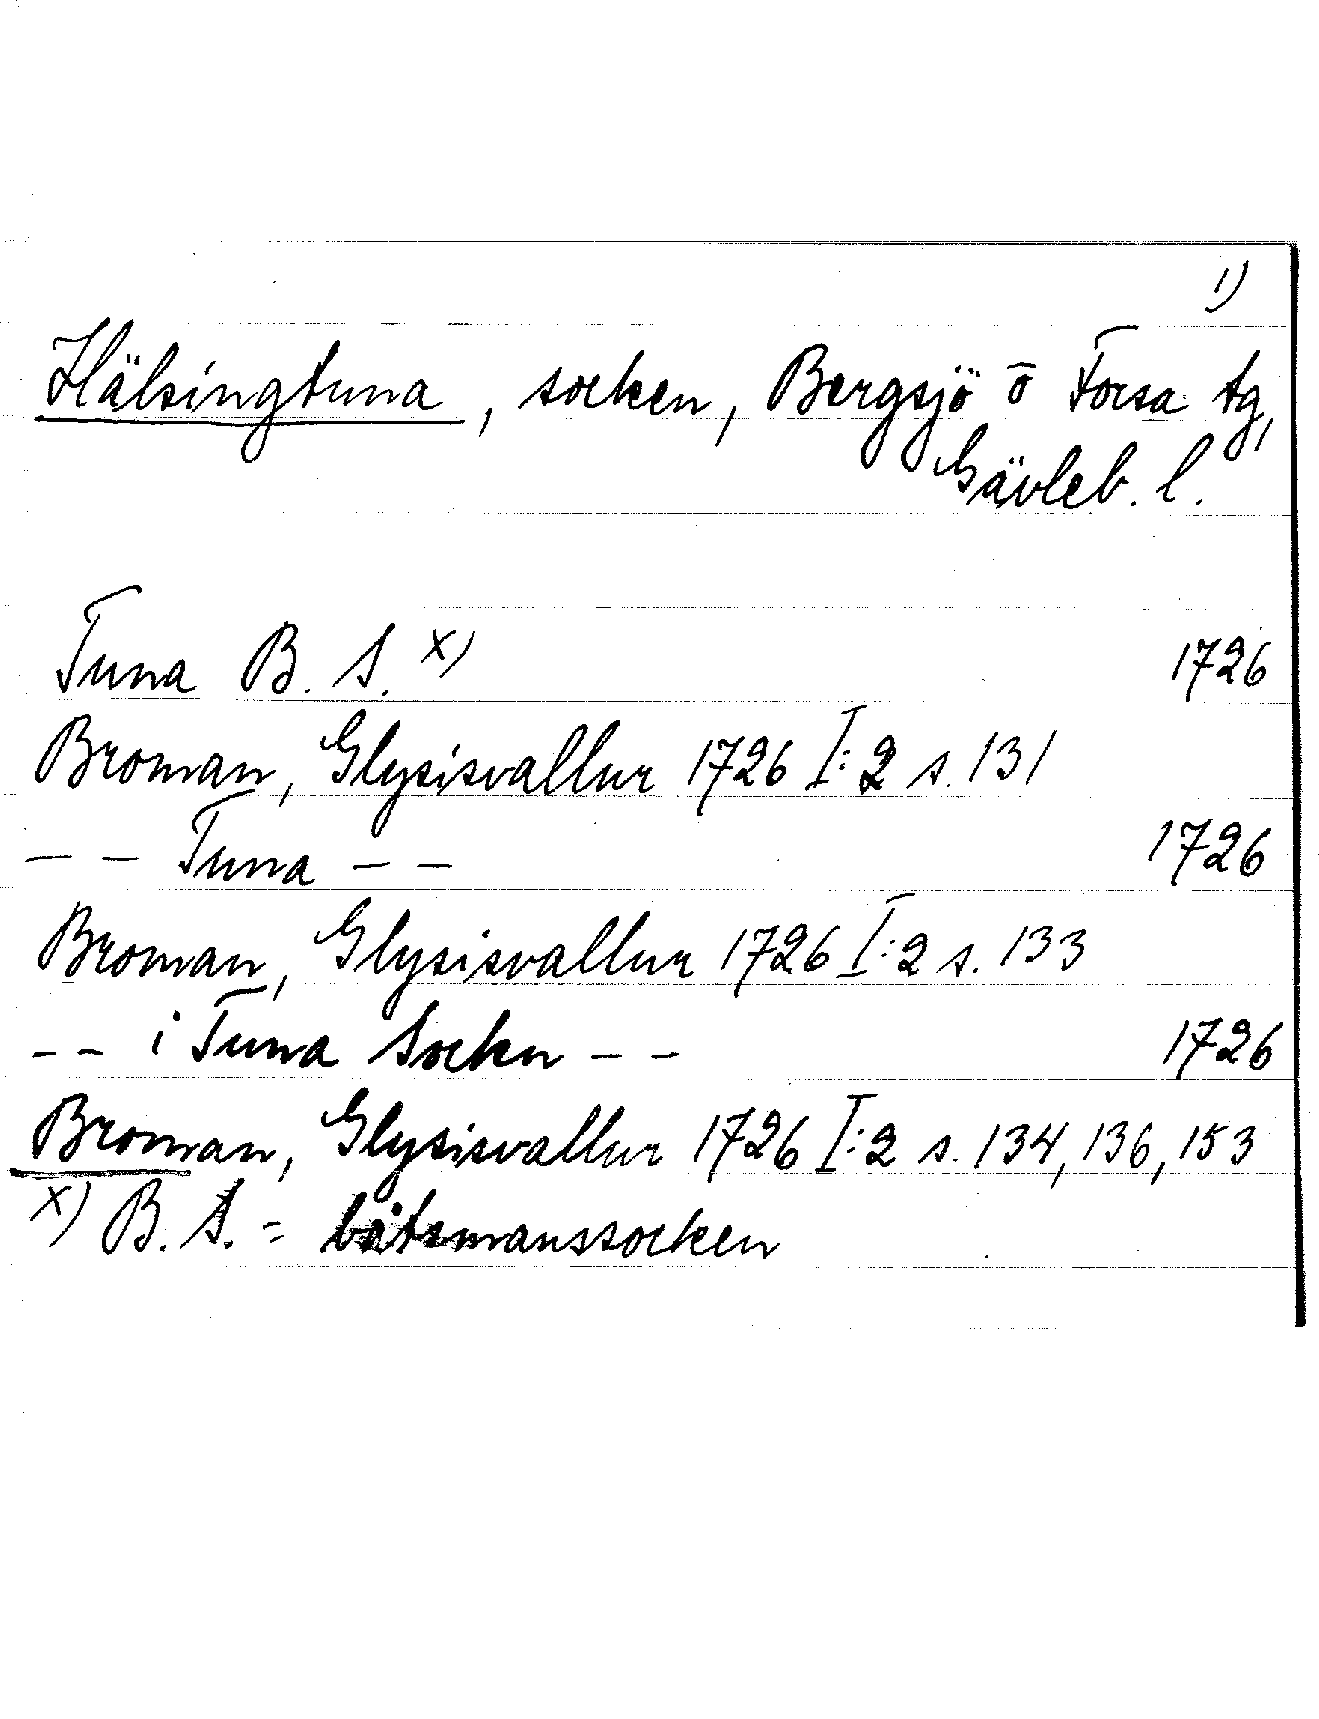 1)
Hälsingtuna, socken, Bergsjö o Forsa tg,
Gävleb. l.
Tuna B. S. x) 1726
Broman, Glysisvallur 1726 I:2 s. 131
– – Tuna – – 1726
Broman, Glysisvallur 1726 I:2 s. 133
– – i Tuna Sockn – – 1726
Broman, Glysisvallur 1726 I:2 s. 134, 136, 153
x) B. S. = båtsmanssocken